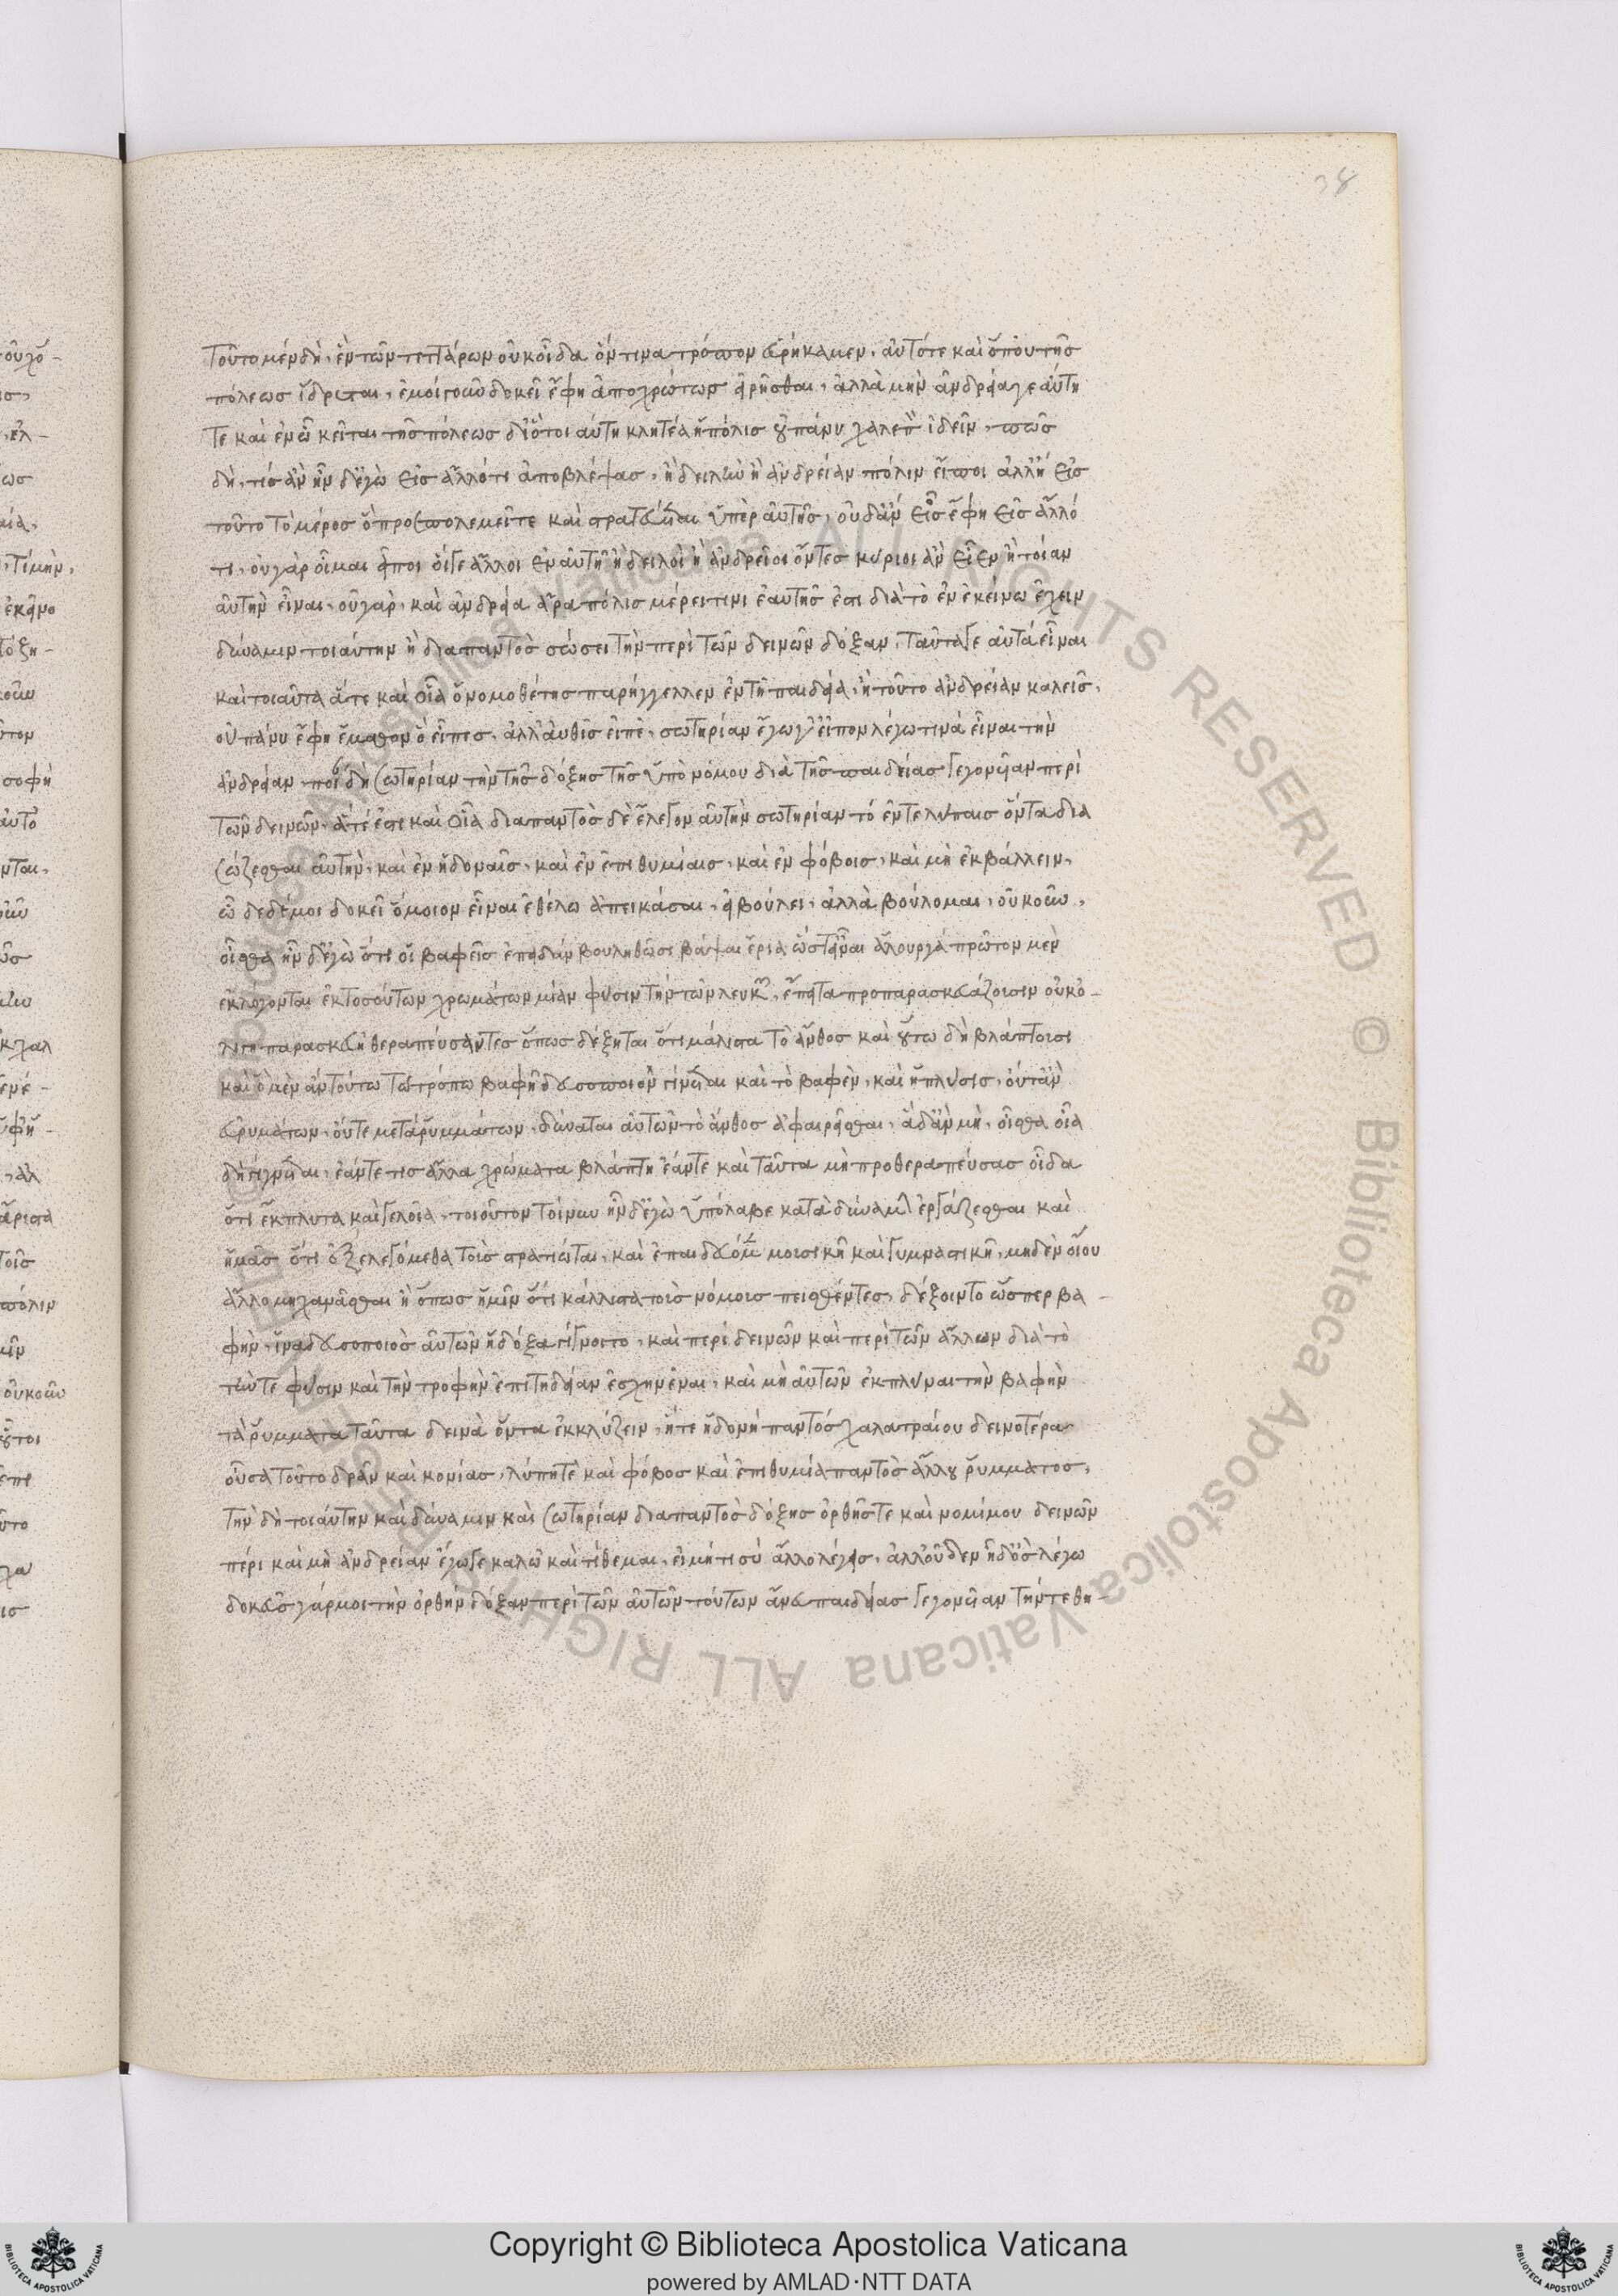 78
τοῦτο μὲν δὴ, ἓν τῶν τεττάρων οὐκ οἶδα ὅντινα τρόπον εὑρήκαμεν, αὐτό τε καὶ ὅπου τῆς
πόλεως ἵδρυται, ἐμοί γοῦν δοκεῖ ἔφη ἀποχρώντως εὑρῆσθαι, ἀλλὰ μὴν ἀνδρεία γε αὐτή
τε καὶ ἐν ᾧ κεῖται τῆς πόλεως δι᾽ ὃ τοιαύτη κλητέα ἡ πόλις οὐ πάνυ χαλεπὸν ἰδεῖν, πῶς
δή, τίς ἂν ἦν δ᾽ ἐγὼ εἰς ἄλλό τι ἀποβλέψας, ἢ δειλὴν ἢ ἀνδρείαν πόλιν εἴποι ἀλλ᾽ ἢ εἰς
τοῦτο τὸ μέρος ὃ προπολεμεῖ τε καὶ στρατεύεται ὑπὲρ αὐτῆς, οὐδ᾽ ἂν εἷς ἔφη εἰς ἄλλό
τι, οὐ γὰρ οἶμαι εἶπον οἵ γε ἄλλοι ἐν αὐτῇ ἢ δειλοὶ ἢ ἀνδρεῖοι ὄντες κύριοι ἂν εἶεν ἢ τοίαν
αὐτὴν εἶναι, οὐ γὰρ, καὶ ἀνδρεία ἄρα πόλις μέρει τινὶ ἑαυτῆς ἐστι διὰ τὸ ἐν ἐκείνῳ ἔχειν
δύναμιν τοιαύτην ἣ διαπαντὸς σώσει τὴν περὶ τῶν δεινῶν δόξαν, ταῦτά γε αὐτά εἶναι
καὶ τοιαῦτα ἅ τε καὶ οἷα ὁ νομοθέτης παρήγγελλεν ἐν τῇ παιδείᾳ, ἢ τοῦτο ἀνδρείαν καλεῖς,
οὐ πάνυ ἔφη ἔμαθον ὃ εἶπες, ἀλλ᾽ αὖθις εἰπέ, σωτηρίαν ἔγωγ᾽ εἶπον λέγω τινά εἶναι τὴν
ἀνδρείαν ποίαν δὴ σωτηρίαν τὴν τῆς δόξης τῆς ὑπὸ νόμου διὰ τῆς παιδείας γεγονυῖαν περὶ
τῶν δεινῶν, ἅ τέ ἐστι καὶ οἷα διαπαντὸς δὲ ἔλεγον αὐτὴν σωτηρίαν τό ἔν τε λύπαις ὄντα δια
σώζεσθαι αὐτὴν, καὶ ἐν ἡδοναῖς, καὶ ἐν ἐπιθυμίαις, καὶ ἐν φόβοις, καὶ μὴ ἐκβάλλειν,
ᾧ δέ μοι δοκεῖ ὅμοιον εἶναι ἐθέλω ἀπεικάσαι, εἰ βούλει, ἀλλὰ βούλομαι, οὐκοῦν,
οἶσθα ἦν δ᾽ ἐγὼ ὅτι οἱ βαφεῖς ἐπειδὰν βουληθῶσι βάψαι ἔρια ὥστ᾽ εἶναι ἁλουργά πρῶτον μὲν
ἐκλέγονται ἐκ τοσούτων χρωμάτων μίαν φύσιν τὴν τῶν λευκῶν, ἔπειτα προπαρασκευάζουσιν οὐκ ὀ-
λίγῃ παρασκευῇ θεραπεύσαντες ὅπως δέξηται ὅτι μάλιστα τὸ ἄνθος καὶ οὕτω δὴ βλάπτουσι
καὶ ὃ μὲν ἂν τούτῳ τῷ τρόπῳ βαφῇ δευσοποιὸν γίνεται καὶ τὸ βαφὲν, καὶ ἡ πλύσις, οὔτ᾽ ἄνευ
ῥυμάτων, οὔτε μετὰ ῥυμμάτων, δύναται αὐτῶν τὸ ἄνθος ἀφαιρεῖσθαι, ἃ δ᾽ ἂν μὴ, οἶσθα οἷα
δὴ γίγνεται, ἐάν τέ τις ἄλλα χρώματα βλάπτῃ ἐάν τε καὶ ταῦτα μὴ προθεραπεύσας οἶδα
ὅτι ἔκπλυτα καὶ γελοῖα, τοιοῦτον τοίνυν ἦν δ᾽ ἐγὼ ὑπόλαβε κατὰ δύναμιν ἐργάζεσθαι καὶ
ἡμᾶς ὅτι ἐξελεγόμεθα τοὺς στρατιώτας, καὶ ἐπαιδεύομεν μουσικῇ καὶ γυμναστικῇ, μηδὲν οἴου
ἄλλο μηχανᾶσθαι ἢ ὅπως ἡμῖν ὅτι κάλλιστα τοὺς νόμους πεισθέντες, δέξοιντο ὥσπερ βα-
φὴν, ἵνα δευσοποιὸς αὐτῶν ἡ δόξα γίγνοιτο, καὶ περὶ δεινῶν καὶ περὶ τῶν ἄλλων διὰ τὸ
τήν τε φύσιν καὶ τὴν τροφὴν ἐπιτηδείαν ἐσχηκέναι, καὶ μὴ αὐτῶν ἐκπλύναι τὴν βαφὴν
τὰ ῥύμματα ταῦτα δεινὰ ὄντα ἐκκλύζειν, ἥ τε ἡδονή παντός χαλαστραίου δεινοτέρα
οὖσα τοῦτο δρᾶν καὶ κονίας, λύπη τε καὶ φόβος καὶ ἐπιθυμία παντὸς ἄλλου ῥύμματος,
τὴν δὴ τοιαύτην καὶ δύναμιν καὶ σωτηρίαν διαπαντὸς δόξης ὀρθῆς τε καὶ νομίμου δεινῶν
πέρι καὶ μὴ ἀνδρείαν ἔγωγε καλῶ καὶ τίθεμαι, εἰ μή τι σύ ἄλλο λέγεις, ἀλλ᾽ οὐδὲν ἦ δ᾽ ὃς λέγω
δοκεῖς γάρ μοι τὴν ὀρθὴν δόξαν περὶ τῶν αὐτῶν τούτων ἄνευ παιδείας γεγονυῖαν τήν τε θη-
Copyright © Biblioteca Apostolica Vaticana
powered by AMLAD·NTT DATA